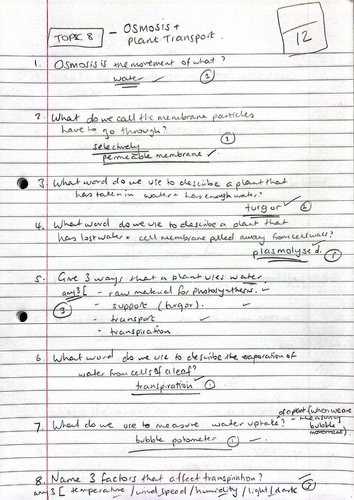 TOPIC 8 - OSMOSIS +
Plant Transport.
12
1. Osmosis is the movement of what?
water ①
2. What do we call the membrane particles
have to go through? ①
selectively
permeable membrane
3. What word do we use to describe a plant that
has taken in water + has enough water?
turgor ①
4. What word do we use to describe a plant that
has lost water + cell membrane pulled away from cell wall?
plasmolysed. ①
5. Give 3 ways that a plant uses water
any 3 [ - raw material for photosynthesis.
③ - support (turgor).
- transport
- transpiration
6. What word do we use to describe the evaporation of
water from cells of a leaf?
transpiration ①
7. What do we use to measure water uptake?
of a plant (when we are
- measuring
bubble
movement)
bubble potometer ①
8. Name 3 factors that affect transpiration?
any 3 [ temperature / wind speed / humidity / light / dark